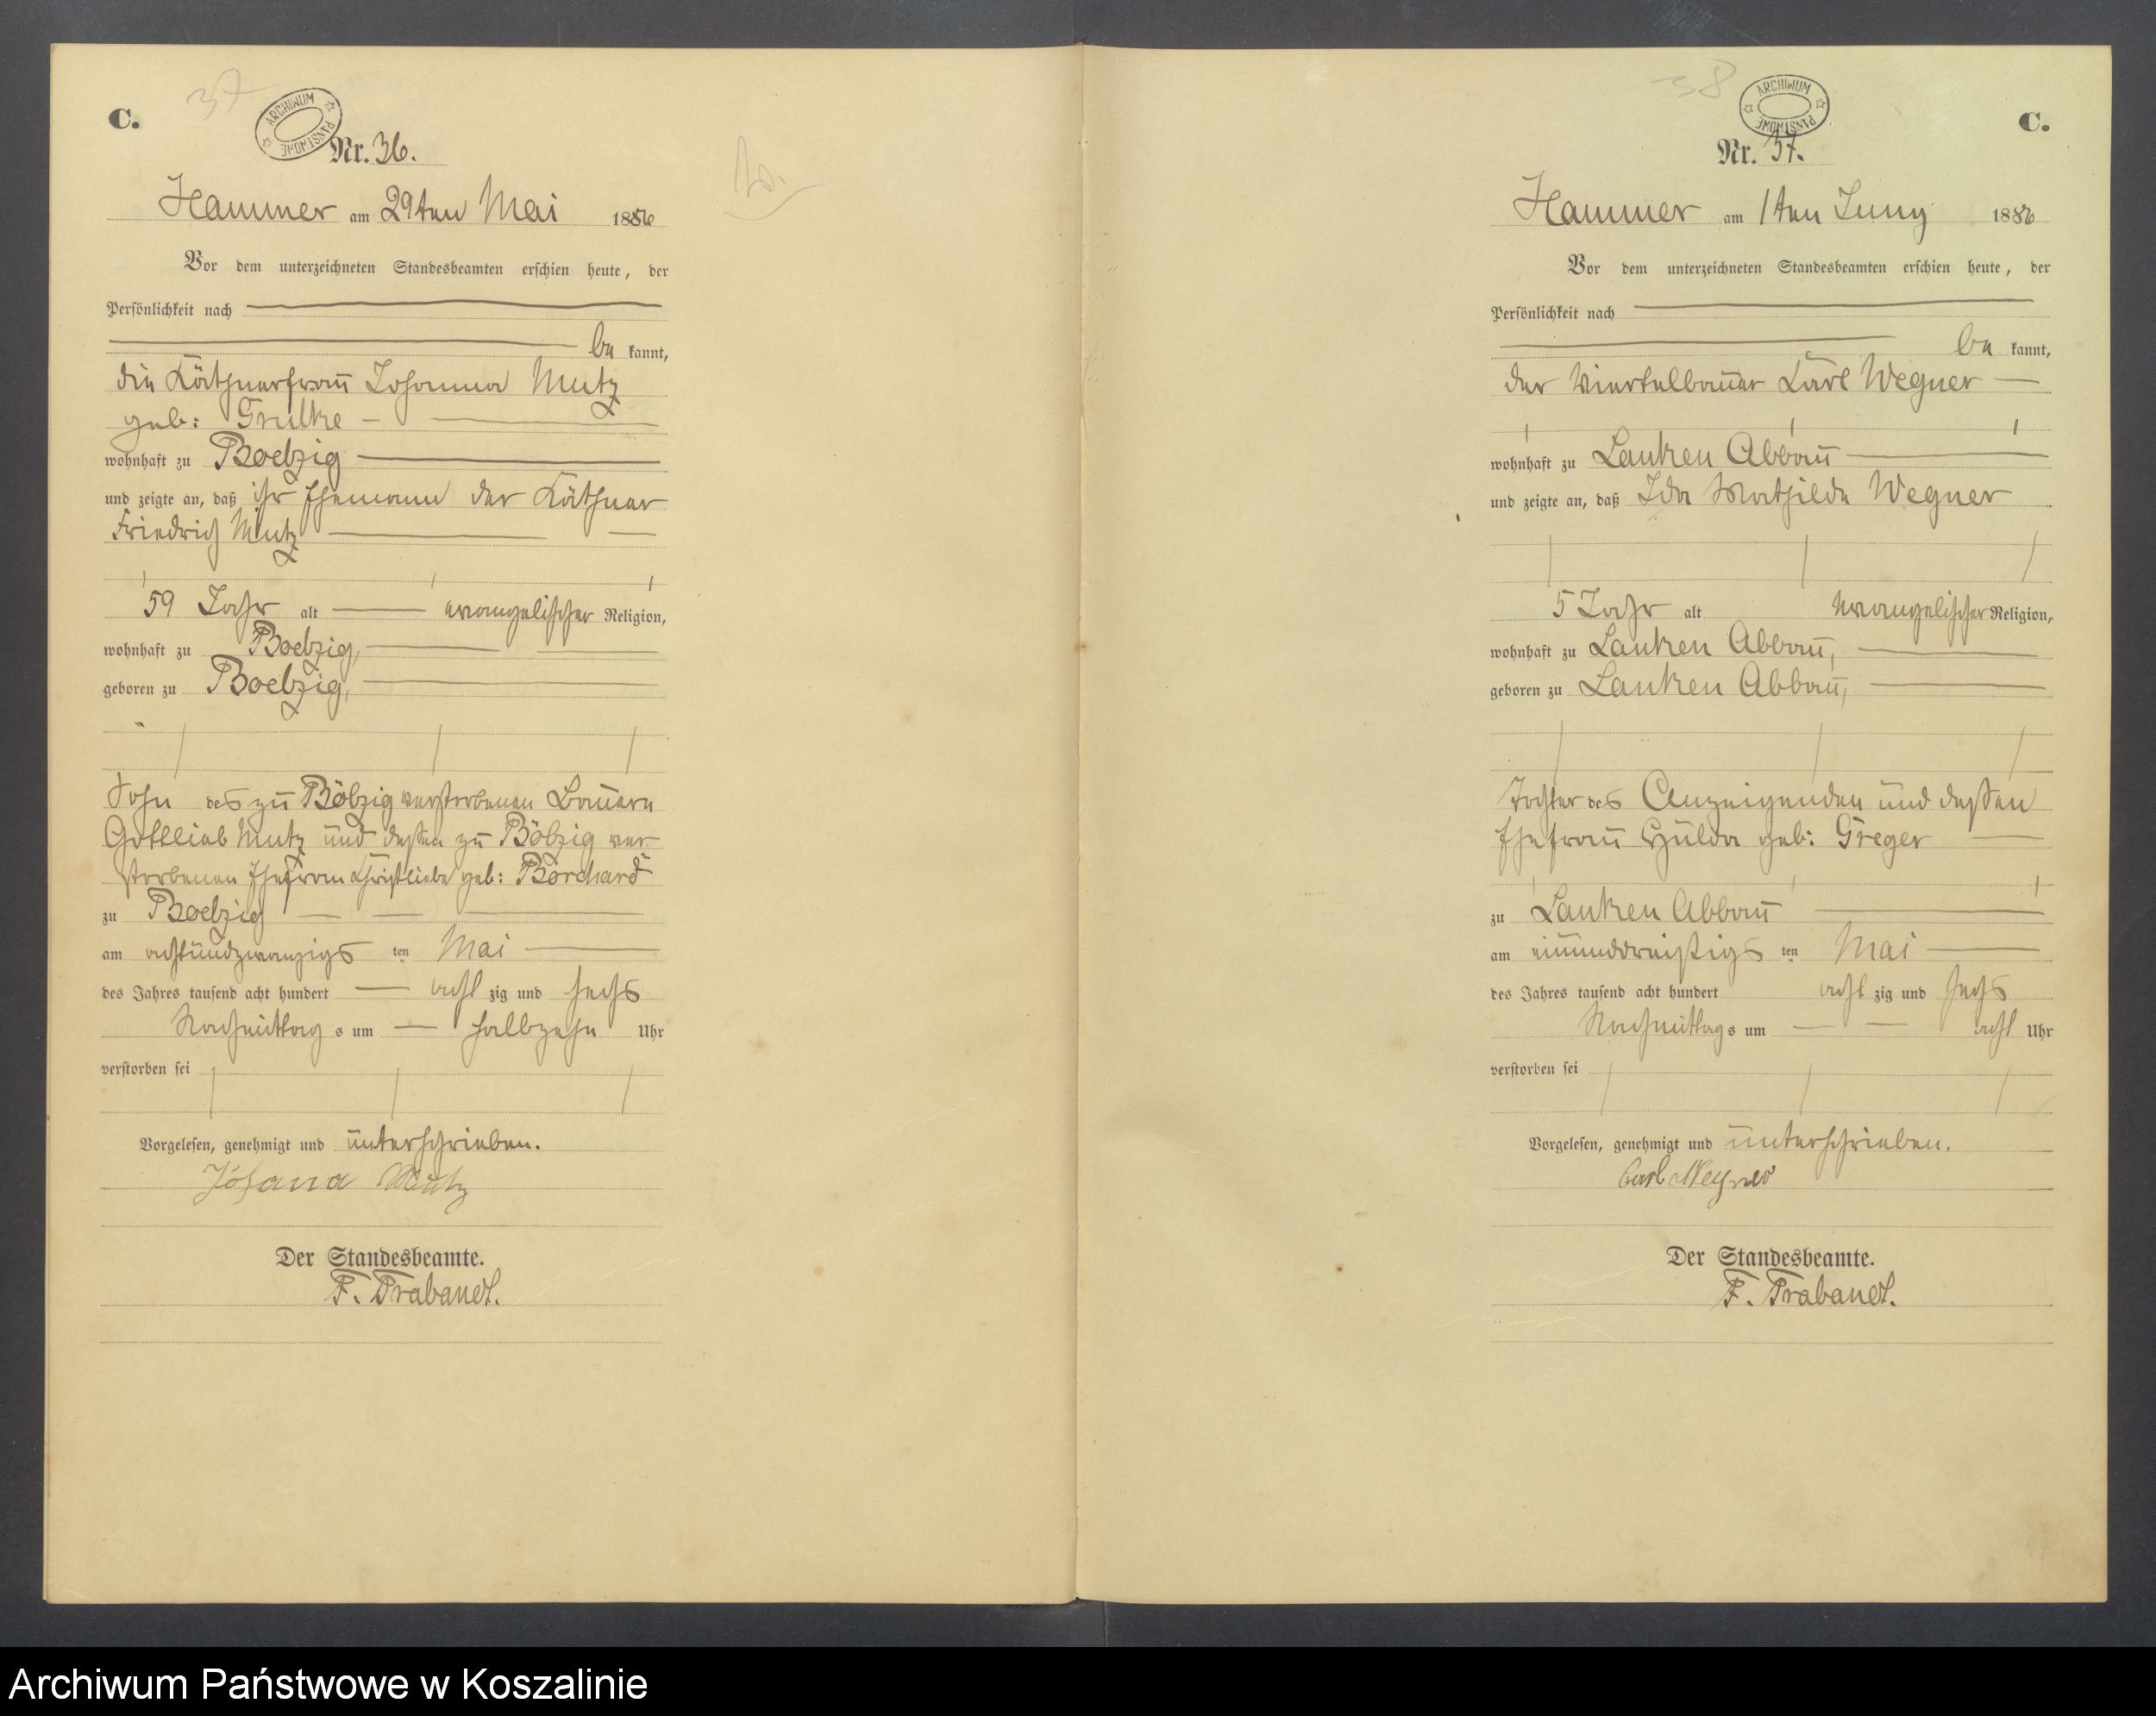 C.
37
ARCHIWUM PAŃSTWOWE
Nr. 36.
Hammer am 29ten Mai 1886
Vor dem unterzeichneten Standesbeamten erschien heute, der
Persönlichkeit nach
be kannt,
die Käthnerfrau Johanna Mutz
geb: Grulke
wohnhaft zu Boebzig
und zeigte an, daß ihr Ehemann der Käthner
Friedrich Mutz
59 Jahr alt evangelischer Religion,
wohnhaft zu Boebzig,
geboren zu Boebzig,
Sohn des zu Böbzig verstorbenen Bauern
Gottlieb Mutz und dessen zu Böbzig ver
storbenen Ehefrau Christliebe geb: Borchard
zu Boebzig
am achtundzwanzigs ten Mai
des Jahres tausend acht hundert acht zig und sechs
Nachmittag s um halbzehn Uhr
verstorben sei
Vorgelesen, genehmigt und unterschrieben.
Johana Mutz
Der Standesbeamte.
F. Trabandt.
38
ARCHIWUM PAŃSTWOWE
C.
Nr. 37.
Hammer am 1ten Juny 1886
Vor dem unterzeichneten Standesbeamten erschien heute, der
Persönlichkeit nach
be kannt,
der Viertelbauer Karl Wegner
wohnhaft zu Lanken Abbau
und zeigte an, daß Ida Mathilde Wegner
5 Jahr alt evangelischer Religion,
wohnhaft zu Lanken Abbau,
geboren zu Lanken Abbau,
Tochter des Anzeigenden und dessen
Ehefrau Hulda geb: Greger
zu Lanken Abbau
am einunddreißigs ten Mai
des Jahres tausend acht hundert acht zig und sechs
Nachmittag s um acht Uhr
verstorben sei
Vorgelesen, genehmigt und unterschrieben.
Carl Wegner
Der Standesbeamte.
F. Trabandt.
Archiwum Państwowe w Koszalinie